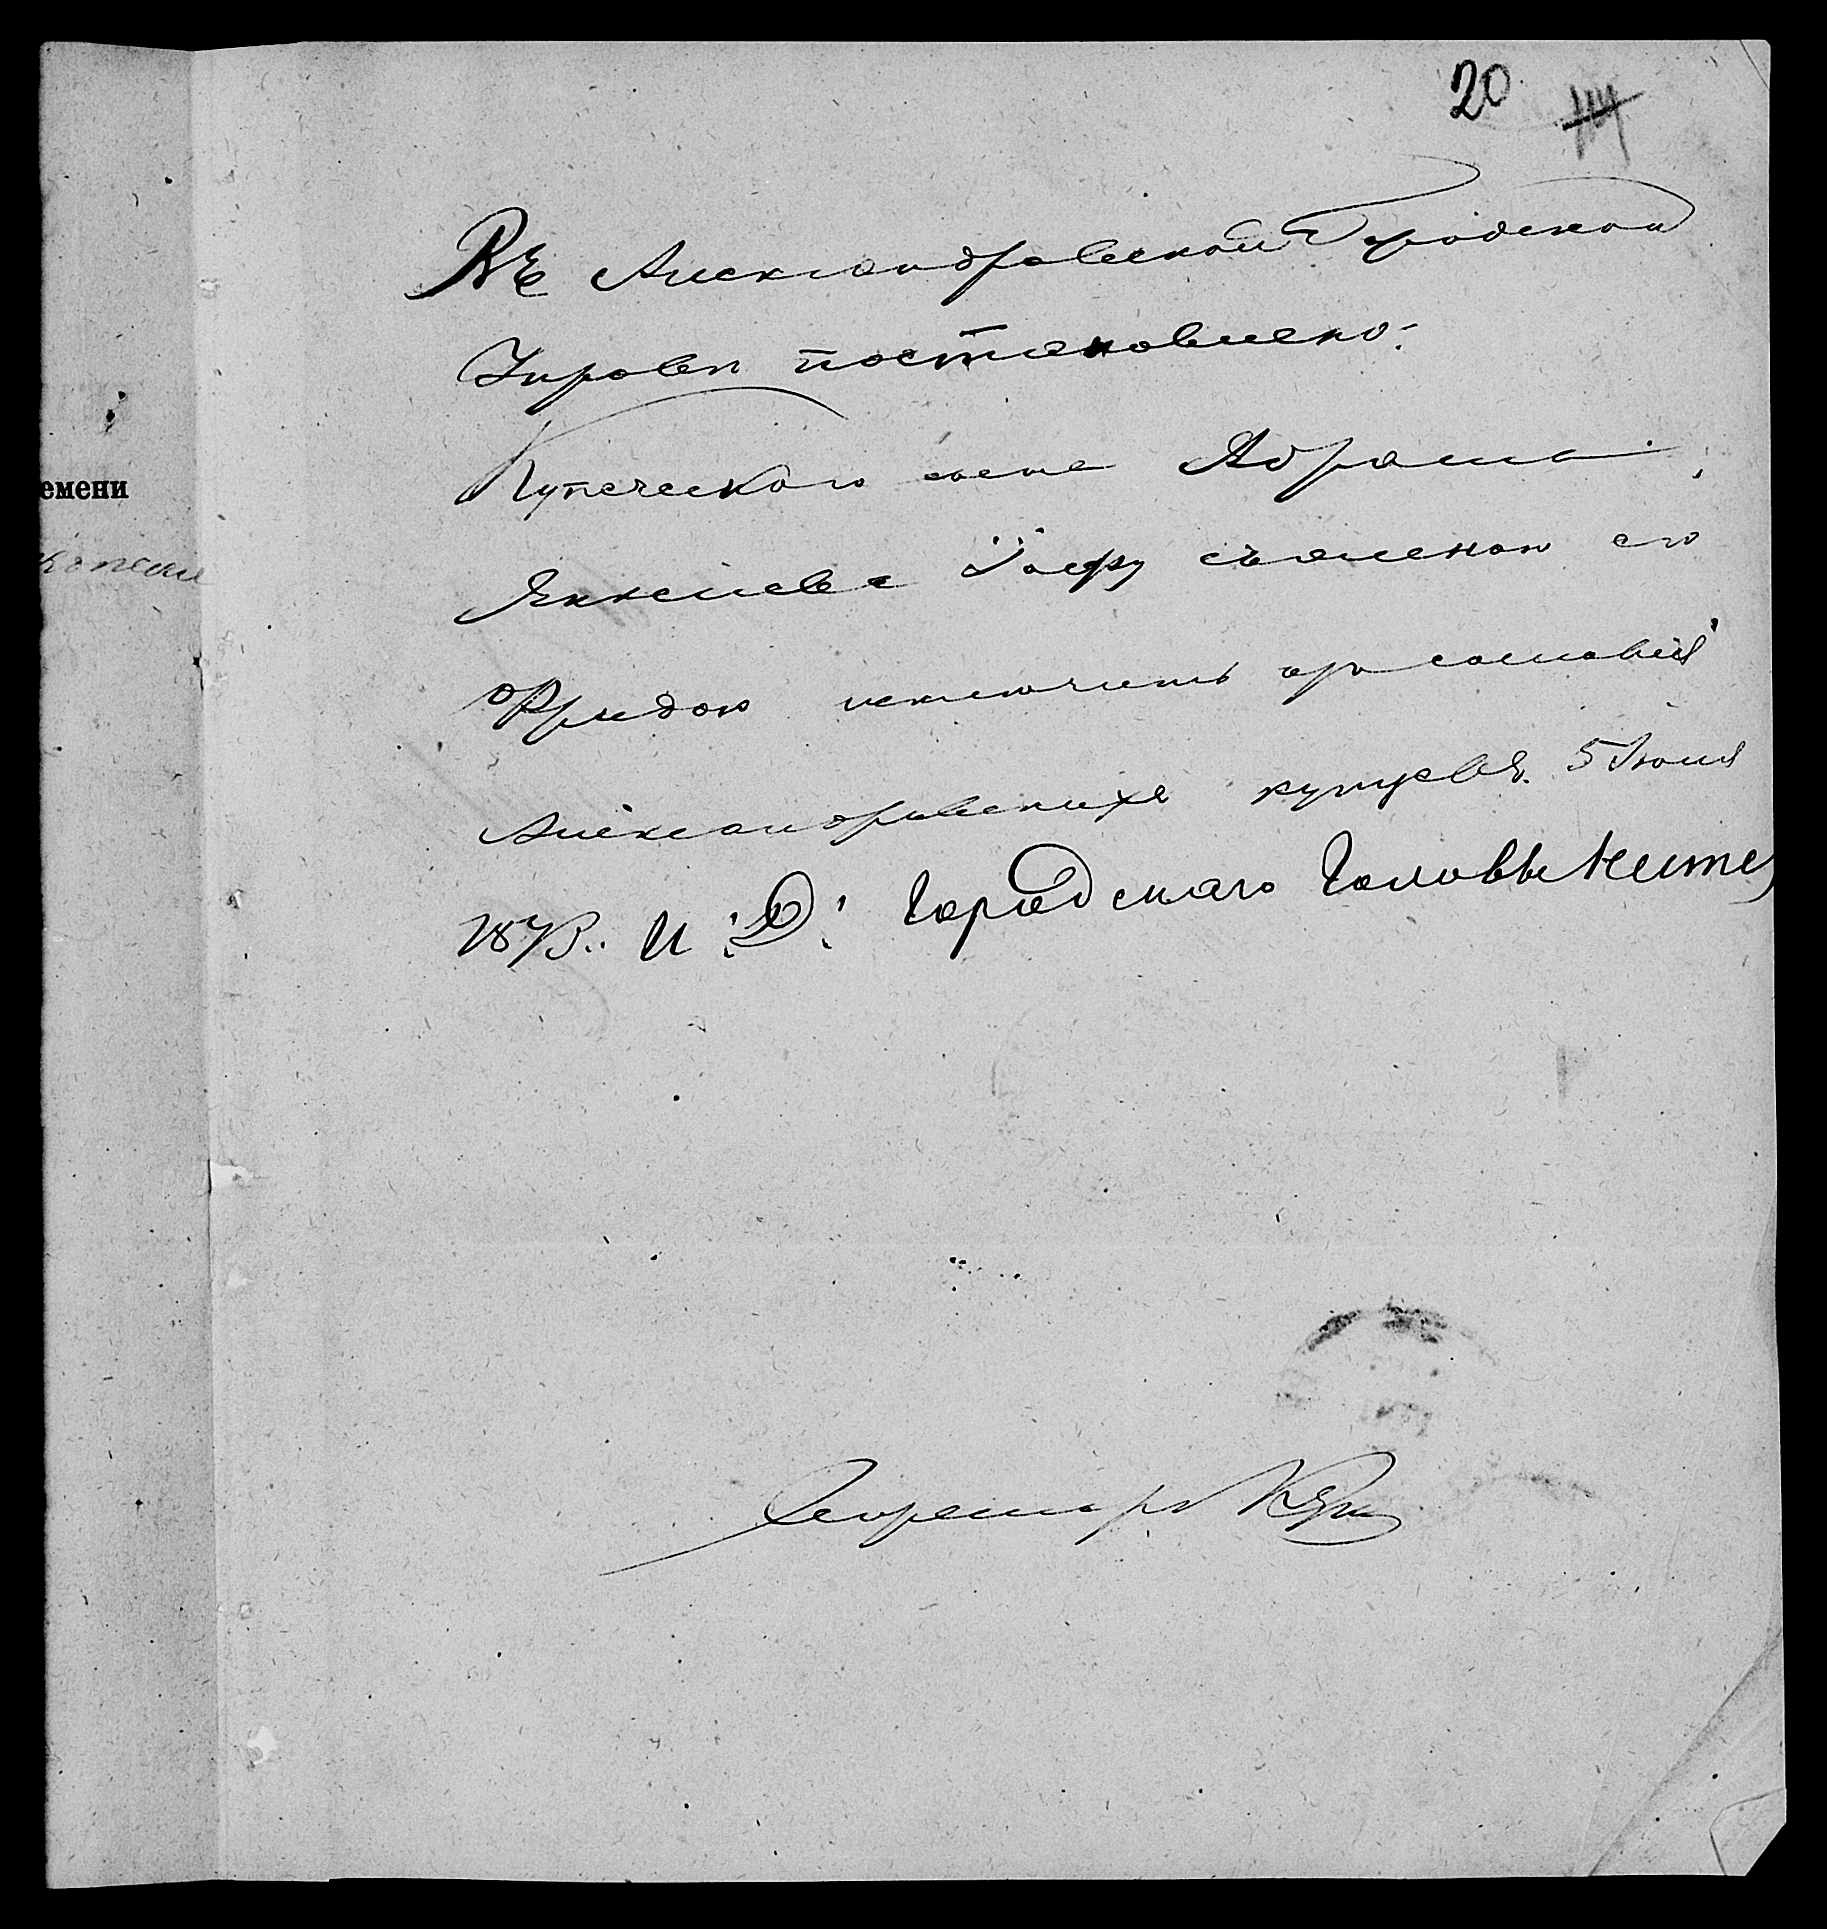 20 114
Въ Александровской Городской
Управѣ постановлено:
Купеческаго сына Абрама
Янкелева Іоффу съ женою его
Фридою исключить изъ сословія
Александровскихъ купцовъ. 5 Іюля
187 г. И: Д: Городскаго Головы
Секретарь
емени
копеи